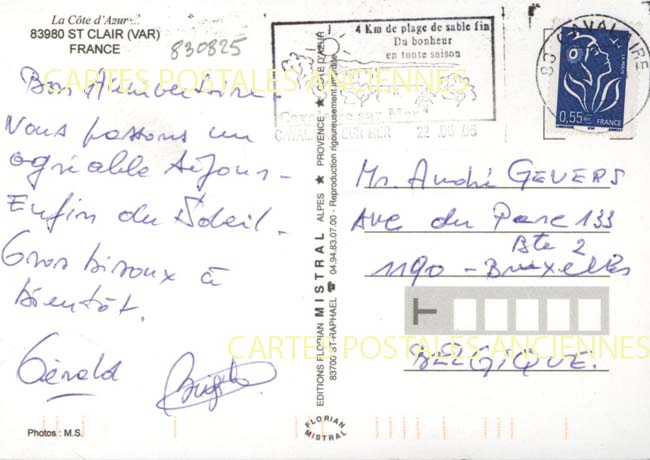 La Côte d'Azur...
83980 ST CLAIR (VAR)
FRANCE
830825
Bon Anniversaire
Nous passons un
agréable séjour -
Enfin du Soleil -
Gros bisoux à
bientôt.
Gérald
Brigitte
Photos : M.S.
EDITIONS FLORIAN MISTRAL ALPES ★ PROVENCE ★ COTE D'AZUR
83700 ST-RAPHAEL ☎ 04.94.83.07.00 - Reproduction rigoureusement interdite
FLORIAN
MISTRAL
4 Km de plage de sable fin
Du bonheur
en toute saison
Cavalaire sur Mer
CAVALAIRE SUR MER 22.06.06
83 CAVALAIRE
LA POSTE
0,55€ FRANCE
Mr. André GEVERS
Ave du Parc 133
Bte 2
1190 - Bruxelles
BELGIQUE.
CARTES POSTALES ANCIENNES
CARTES POSTALES ANCIENNES